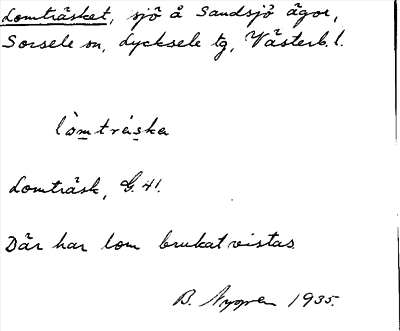 Lomträsket, sjö å Sandsjö ägor,
Sorsele sn, Lycksele tg, Västerb. l.
lòmtráska
Lomträsk, G. 41.
Där har lom brukat vistas
B. Nygren 1935.